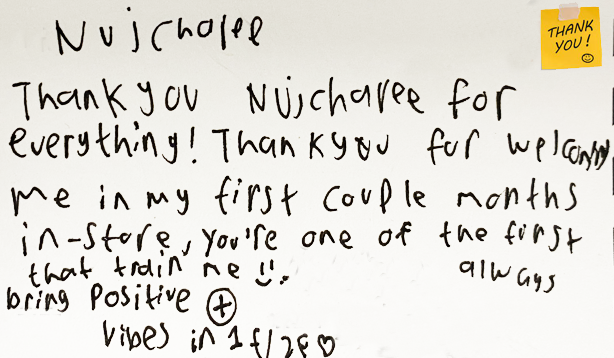 Nujcharee
THANK
YOU!
Thank you Nujcharee for
everything! Thank you for welcoming
me in my first couple months
in-store, you're one of the first
that train me always
bring positive
vibes in 1F/2F